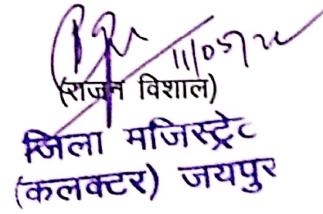 11/05/22
(राजन विशाल)
जिला मजिस्ट्रेट
(कलक्टर) जयपुर